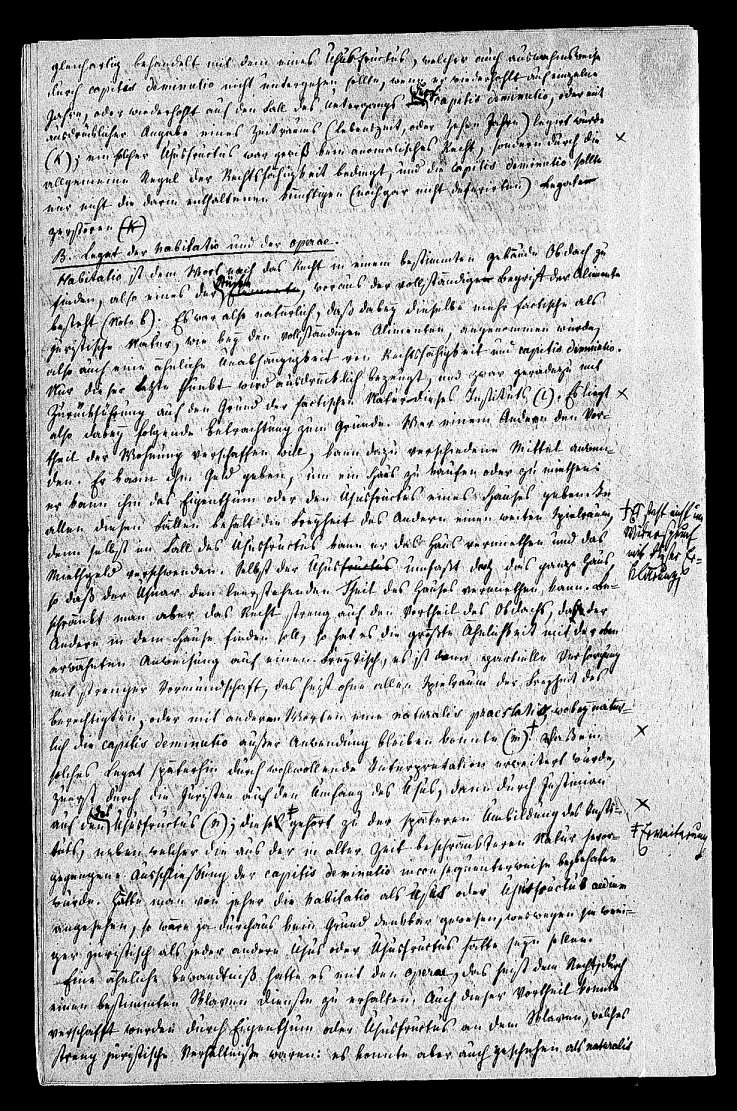 gleichartig behandelt mit dem eines Ususfructus, welcher auch ausnahmsweise
durch capitis deminutio nicht untergehen sollte, wenn er wiederholt auf einzelne
Jahre, oder wiederholt auf den Fall des Untergangs durch capitis deminutio, oder mit
ausdrücklicher Angabe eines Zeitraums (Lebenszeit, oder zehen Jahre) legirt wurde
(k); ein solcher Ususfructus war gewiß kein anomalisches Recht, sondern durch die
allgemeine Regel der Rechtsfähigkeit bedingt, und die capitis deminutio sollte
nur nicht die darin enthaltenen künftigen (noch gar nicht deferirten) Legate
zerstören (k)
B. Legat der habitatio und der operae.
Habitatio ist dem Wort nach das Recht in einem bestimmten Gebäude Obdach zu
finden, also eines der Stücke, woraus der vollständige Begriff der Alimente
besteht (Note b). Es war also natürlich, daß dabey dieselbe mehr factische als
juristische Natur, wie bey den vollständigen Alimenten, angenommen wurde,
also auch eine ähnliche Unabhängigkeit von Rechtsfähigkeit und capitis deminutio.
Nur dieser letzte Punkt wird ausdrücklich bezeugt, und zwar geradezu mit
Zurückführung auf den Grund der factischen Natur dieses Instituts (l). Es liegt
also dabey folgende Betrachtung zum Grunde. Wer einem Andern den Vor-
theil der Wohnung verschaffen will, kann dazu verschiedene Mittel anwen-
den. Er kann ihm Geld geben, um ein Haus zu kaufen oder zu miethen:
er kann ihm das Eigenthum oder den Ususfructus eines Hauses geben. In
allen diesen Fällen behält die Freyheit des Andern einen weiten Spielraum,
denn selbst im Fall des Ususfructus kann er das Haus vermiethen und das
Miethgeld verschwenden. Selbst der Usus umfaßt doch das ganze Haus,
so daß der Usuar den leerstehenden Theil des Hauses vermiethen kann. Be-
schränkt man aber das Recht streng auf den Vortheil des Obdachs, das der
Andere in dem Hause finden soll, so hat es die größte Ähnlichkeit mit der oben
erwähnten Anweisung auf einen Freytisch, es ist dann partielle Versorgung
mit strenger Vormundschaft, das heißt ohne allen Spielraum der Freyheit des
berechtigten, oder mit anderen Worten eine naturalis praestatio, wobey natür-
lich die capitis deminutio außer Anwendung bleiben konnte (m). † Daß ein
solches Legat späterhin durch wohlwollende Interpretation erweitert wurde,
zuerst durch die Juristen auf den Umfang des Usus, dann durch Justinian
auf den des Ususfructus (n); diese ‡ gehört zu der späteren Umbildung des Insti-
tuts, neben welcher die aus der in alter Zeit beschränkteren Natur hervor-
gegangene Ausschließung der capitis deminutio inconsequenterweise beybehalten
wurde. Hätte man von jeher die habitatio als Usus oder Ususfructus aedium
angesehen, so wäre ja durchaus kein Grund denkbar gewesen, weswegen sie weni-
ger juristisch als jeder andere Usus oder Ususfructus hätte seyn sollen.
Eine ähnliche Bewandtniß hatte es mit den operae, das heißt dem Recht, durch
einen bestimmten Sklaven Dienste zu erhalten. Auch dieser Vortheil konnte
verschafft werden durch Eigenthum oder Ususfructus an dem Sklaven, welches
streng juristische Verhältnisse waren: es konnte aber auch geschehen als naturalis
‡ Erweiterung